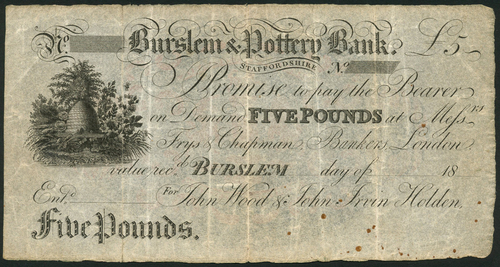 No. Burslem & Pottery Bank. £5
STAFFORDSHIRE No.
I Promise to pay the Bearer
on Demand FIVE POUNDS at Messrs
Frys & Chapman Bankers, London
value recd. BURSLEM day of 18
Entd. For John Wood & John Irvin Holden.
Five Pounds.